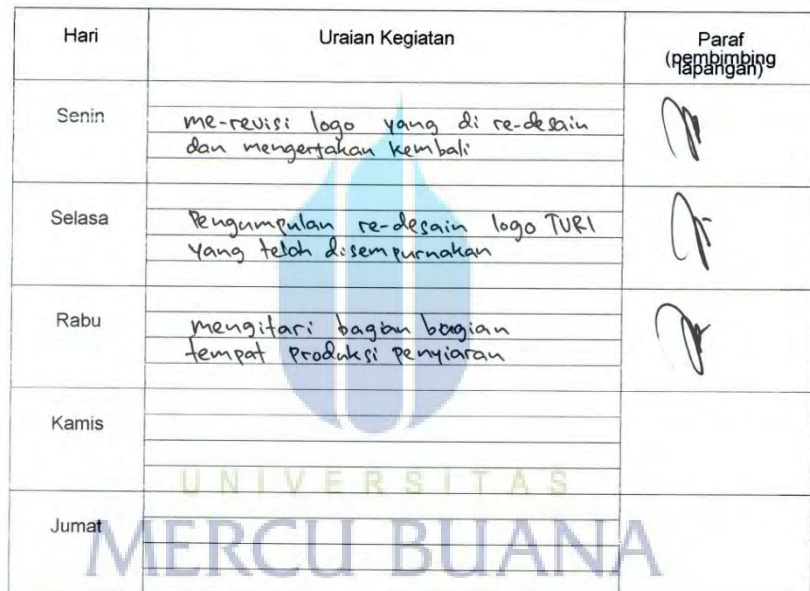 Hari
Uraian Kegiatan
Paraf
(pembimbing
lapangan)
Senin
me-revisi logo yang di re-desain
dan mengerjakan kembali
Selasa
Pengumpulan re-desain logo TVRI
yang telah disempurnakan
Rabu
mengitari bagian bagian
tempat produksi penyiaran
Kamis
UNIVERSITAS
Jumat
MERCU BUANA